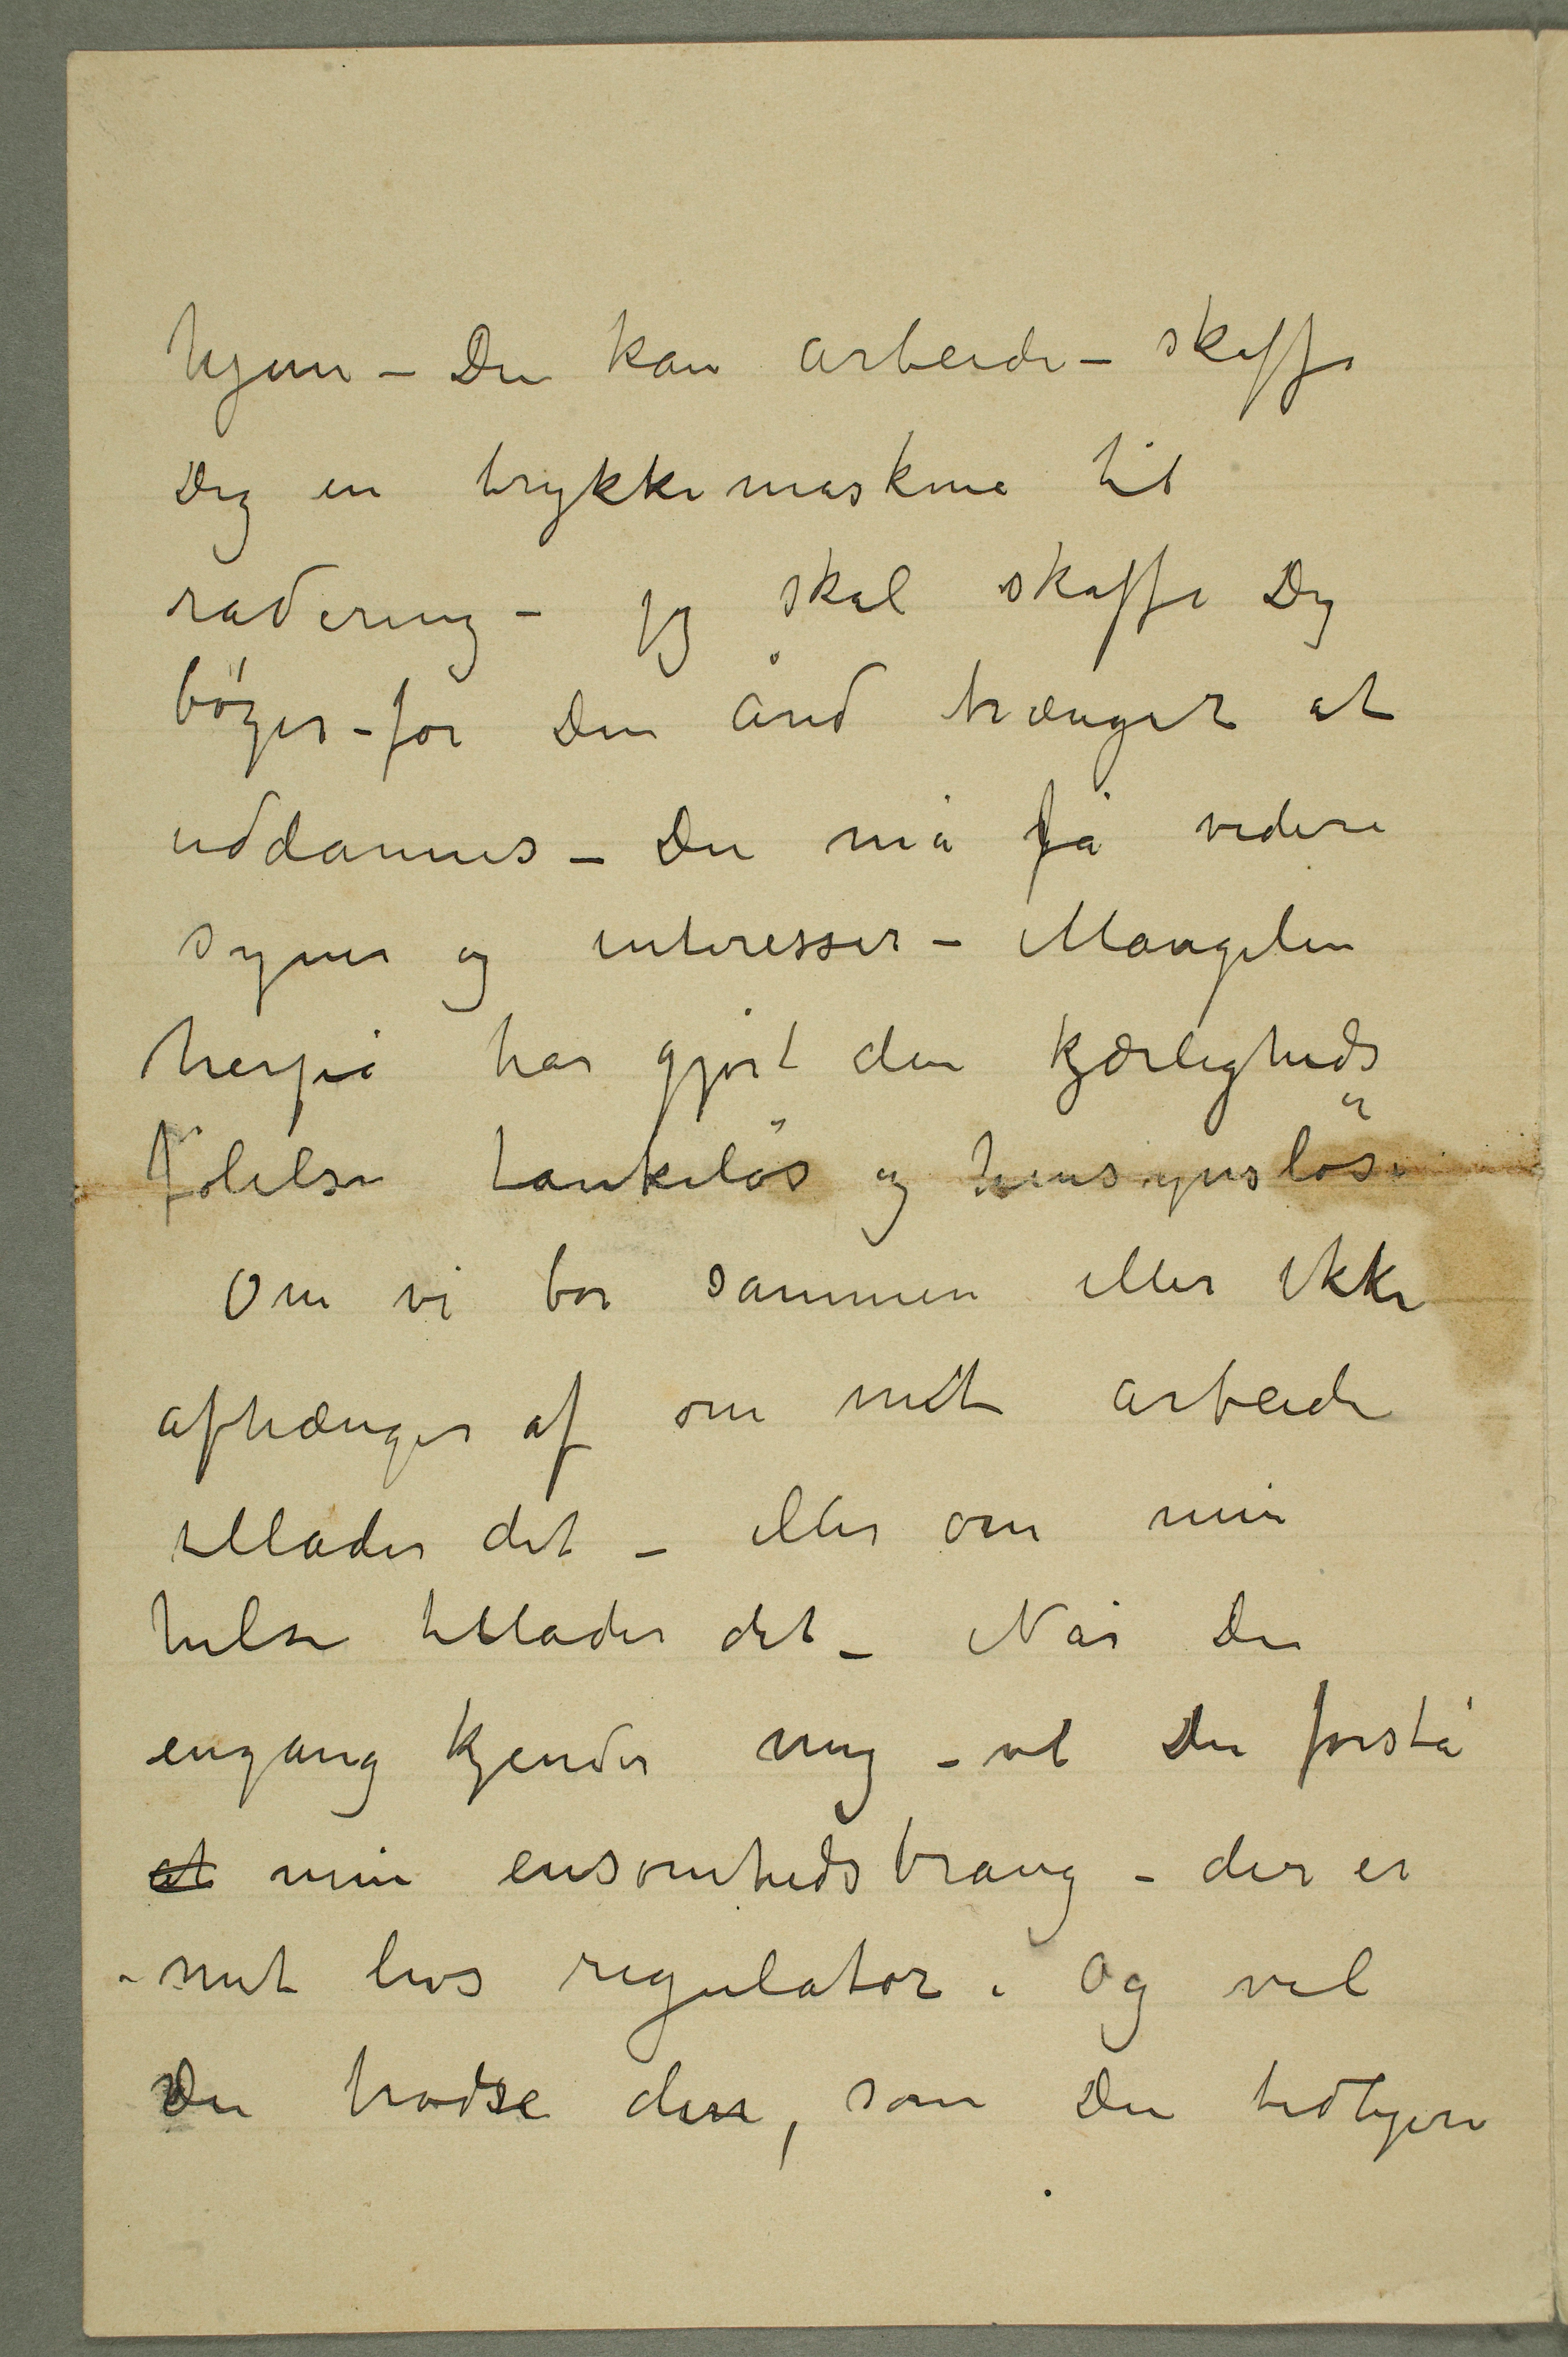 hjem – Du kan arbeide – skaffe
Dig en trykkemaskine til
radering – jeg skal skaffe Dig
böger – for Din ånd trænger at
uddannes – Du må få videre
syner og interesser – Mangelen
herpå har gjort din kjærligheds
følelse tankelös og hensynslös.
Om vi bor sammen eller ikke
afhænger af om mit arbeide
tillader det – eller om min
helse tillader det – Når Du
engang kjender mig – vil Du forstå
at min ensomhedstrang – der er
– mit livs regulator. Og vil
Du trodse den, som Du tidligere